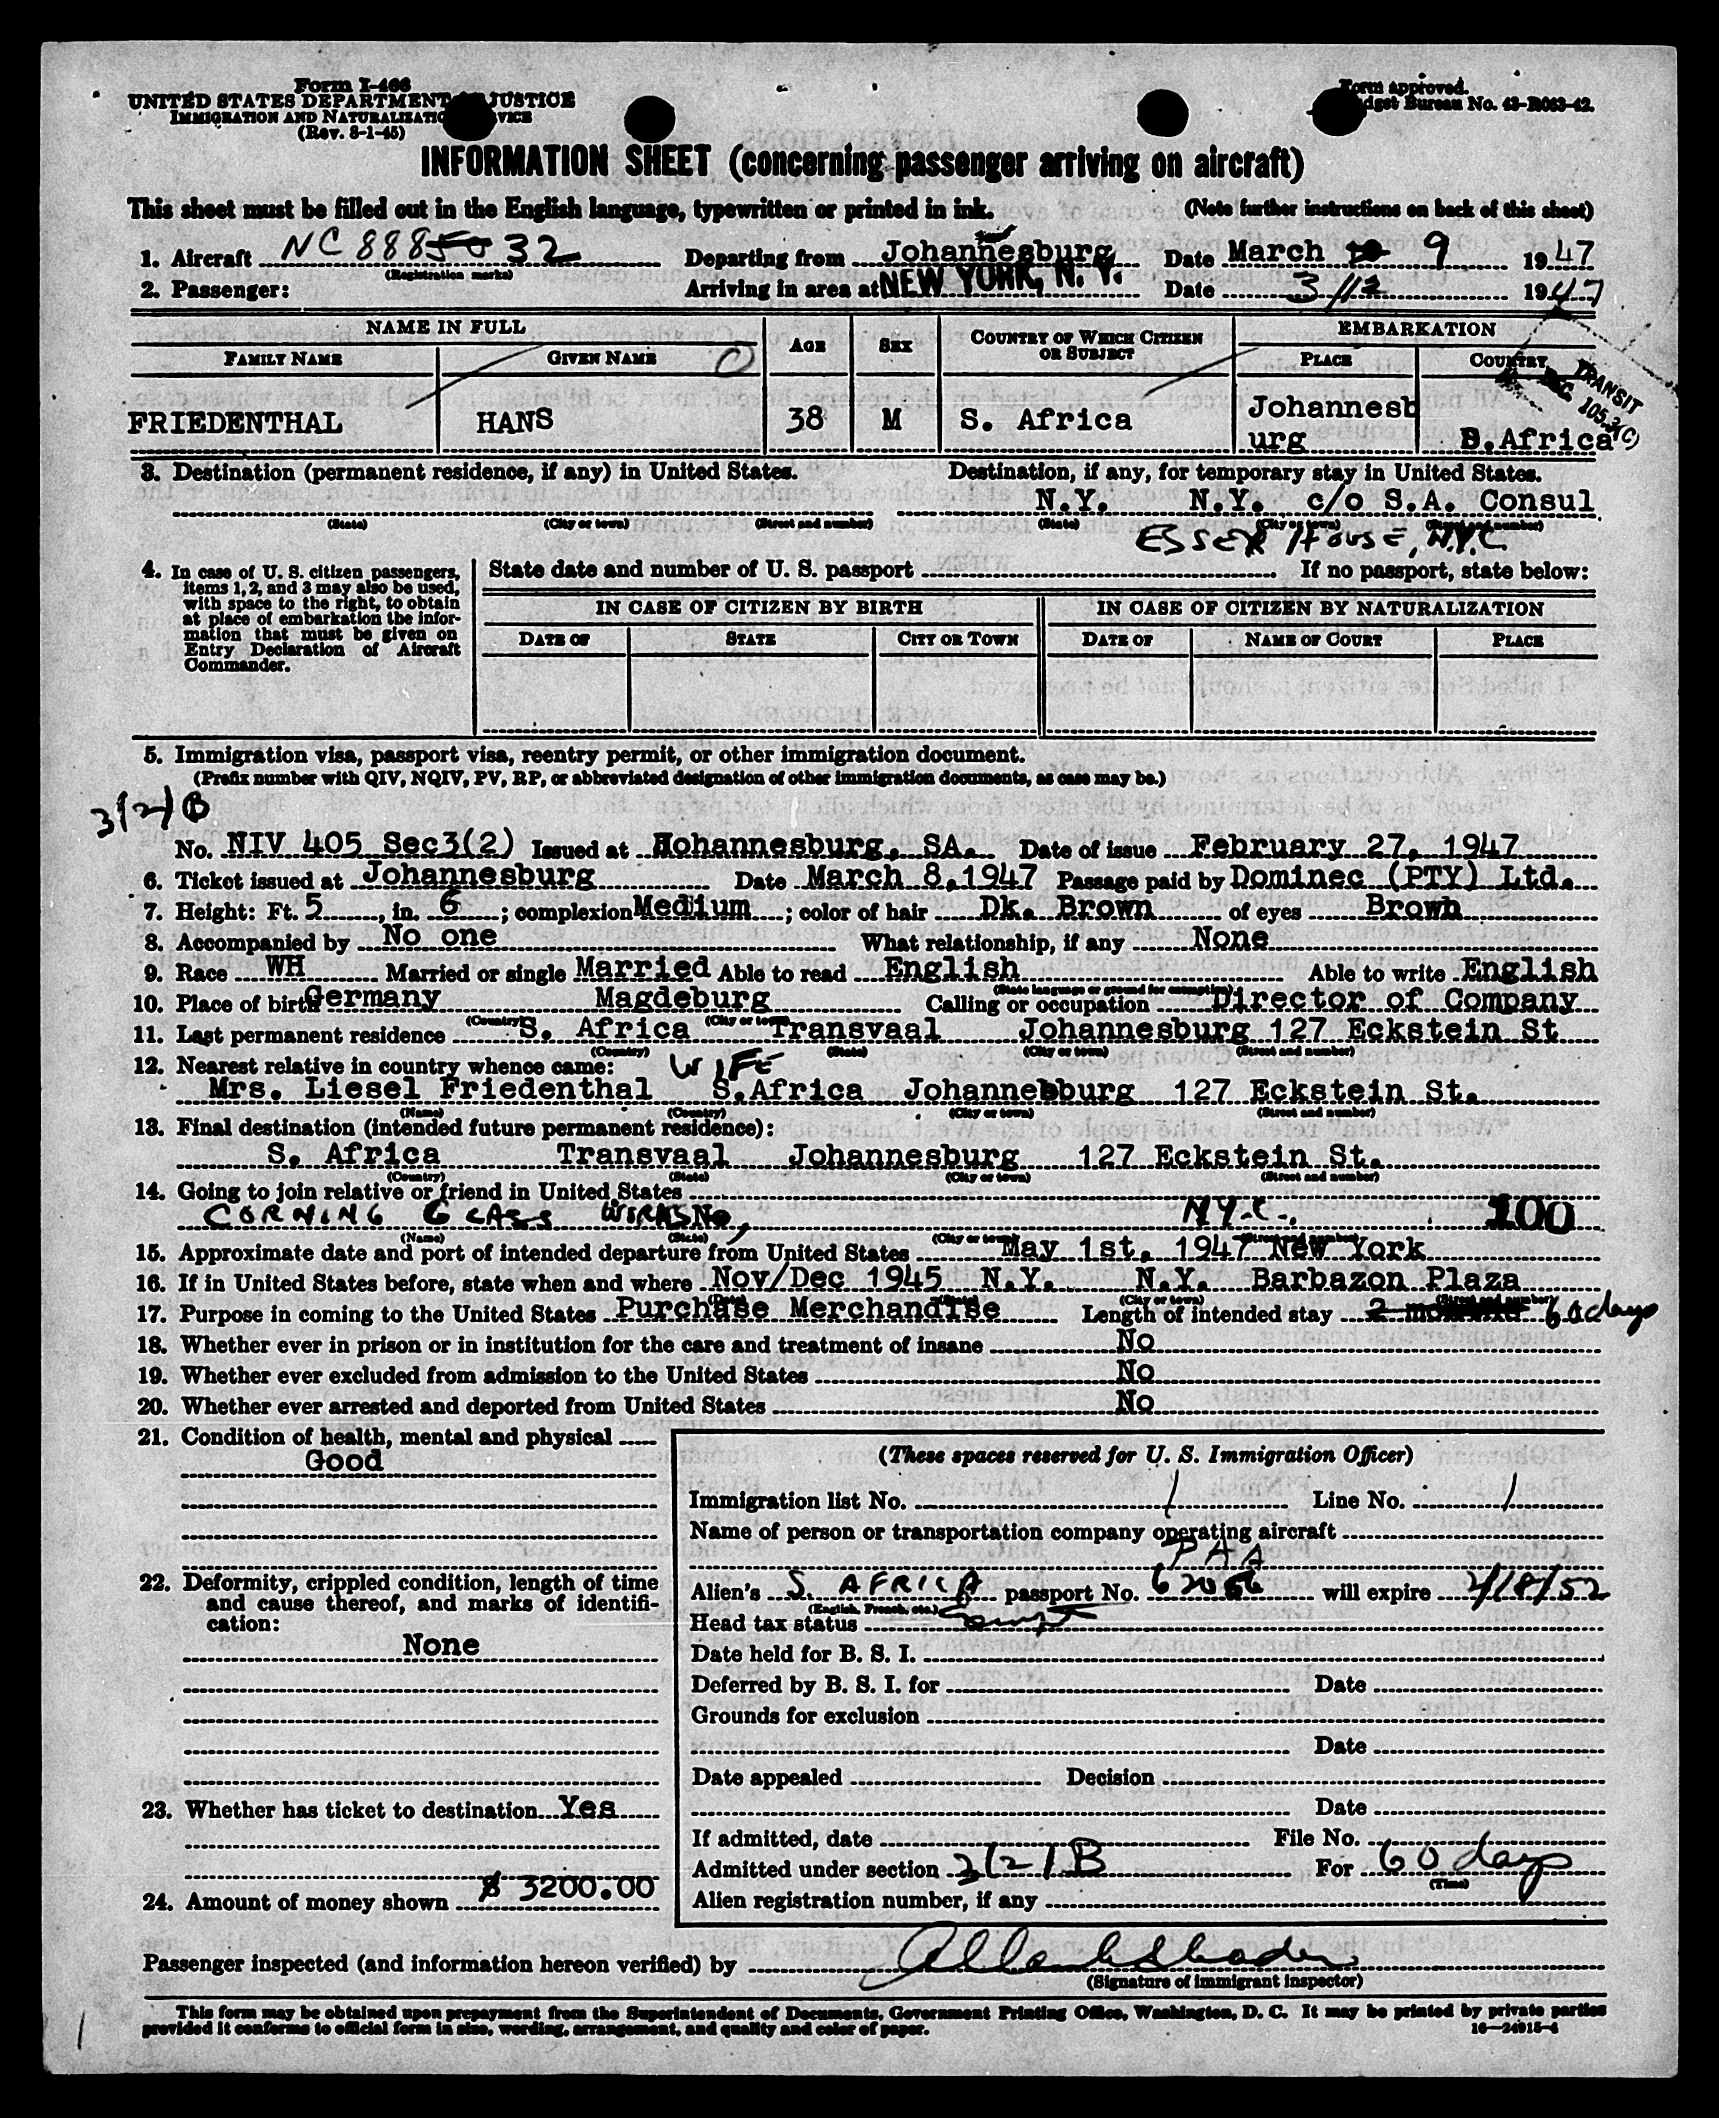 Form I-466
UNITED STATES DEPARTMENT JUSTICE
IMMIGRATION AND NATURALIZATION
(Rev. 8-1-45)
Form approved.
Budget Bureau No. 43-R063-42.
INFORMATION SHEET (concerning passenger arriving on aircraft)
This sheet must be filled out in the English language, typewritten or printed in ink. (Note further instructions on back of this sheet)
1. Aircraft NC 88850 32 Departing from Johannesburg Date March 10 9 1947
(Registration marks)
2. Passenger: Arriving in area at NEW YORK, N. Y. Date 3/12 1947
NAME IN FULL AGE SEX COUNTRY OF WHICH CITIZEN OR SUBJECT EMBARKATION
FAMILY NAME GIVEN NAME PLACE COUNTRY
TRANSIT
SEC. 105.3(C)
FRIEDENTHAL HANS 38 M S. Africa Johannesb
urg S.Africa
3. Destination (permanent residence, if any) in United States. Destination, if any, for temporary stay in United States.
N.Y. N.Y. c/o S.A. Consul
(State) (City or town) (Street and number) (State) (City or town) (Street and number)
ESSEX HOUSE, N.Y.C.
4. In case of U. S. citizen passengers, items 1, 2, and 3 may also be used, with space to the right, to obtain at place of embarkation the information that must be given on Entry Declaration of Aircraft Commander.
State date and number of U. S. passport If no passport, state below:
IN CASE OF CITIZEN BY BIRTH IN CASE OF CITIZEN BY NATURALIZATION
DATE OF STATE CITY OR TOWN DATE OF NAME OF COURT PLACE
5. Immigration visa, passport visa, reentry permit, or other immigration document.
(Prefix number with QIV, NQIV, PV, RP, or abbreviated designation of other immigration documents, as case may be.)
3(2)B
No. NIV 405 Sec3(2) Issued at Hohannesburg, SA. Date of issue February 27, 1947
6. Ticket issued at Johannesburg Date March 8,1947 Passage paid by Dominec (PTY) Ltd.
7. Height: Ft. 5, in. 6; complexion Medium; color of hair Dk. Brown of eyes Brown
8. Accompanied by No one What relationship, if any None
9. Race WH Married or single Married Able to read English Able to write English
(State language or ground for exemption)
10. Place of birth Germany Magdeburg Calling or occupation Director of Company
(Country) (City or town)
11. Last permanent residence S. Africa Transvaal Johannesburg 127 Eckstein St
(Country) (State) (City or town) (Street and number)
12. Nearest relative in country whence came: WIFE
Mrs. Liesel Friedenthal S.Africa Johannesburg 127 Eckstein St.
(Name) (Country) (City or town) (Street and number)
13. Final destination (intended future permanent residence):
S. Africa Transvaal Johannesburg 127 Eckstein St.
(Country) (State) (City or town) (Street and number)
14. Going to join relative or friend in United States
CORNING GLASS WORKS No, N.Y.C., 100
(Name) (State) (City or town) (Street and number)
15. Approximate date and port of intended departure from United States May 1st, 1947 New York
16. If in United States before, state when and where Nov/Dec 1945 N.Y. N.Y. Barbazon Plaza
(Date) (State) (City or town) (Street and number)
17. Purpose in coming to the United States Purchase Merchandise Length of intended stay 60 days
18. Whether ever in prison or in institution for the care and treatment of insane No
19. Whether ever excluded from admission to the United States No
20. Whether ever arrested and deported from United States No
21. Condition of health, mental and physical
Good
22. Deformity, crippled condition, length of time and cause thereof, and marks of identification:
None
23. Whether has ticket to destination Yes
24. Amount of money shown $ 3200.00
(These spaces reserved for U. S. Immigration Officer)
Immigration list No. 1 Line No. 1
Name of person or transportation company operating aircraft
PAA
Alien's S. AFRICA passport No. 62056 will expire 2/18/52
(English, French, etc.)
Head tax status
Date held for B. S. I.
Deferred by B. S. I. for Date
Grounds for exclusion
Date
Date appealed Decision
Date
If admitted, date File No.
Admitted under section 3(2)B For 60 days
(Time)
Alien registration number, if any
Passenger inspected (and information hereon verified) by
(Signature of immigrant inspector)
This form may be obtained upon prepayment from the Superintendent of Documents, Government Printing Office, Washington, D. C. It may be printed by private parties
provided it conforms to official form in size, wording, arrangement, and quality and color of paper.
16—24915-4